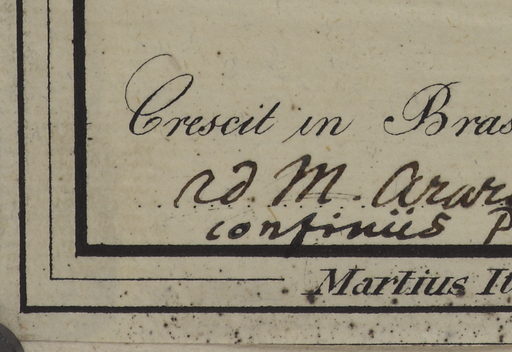 Crescit in Bras
ad M. Arar
confiniis P
Martius It